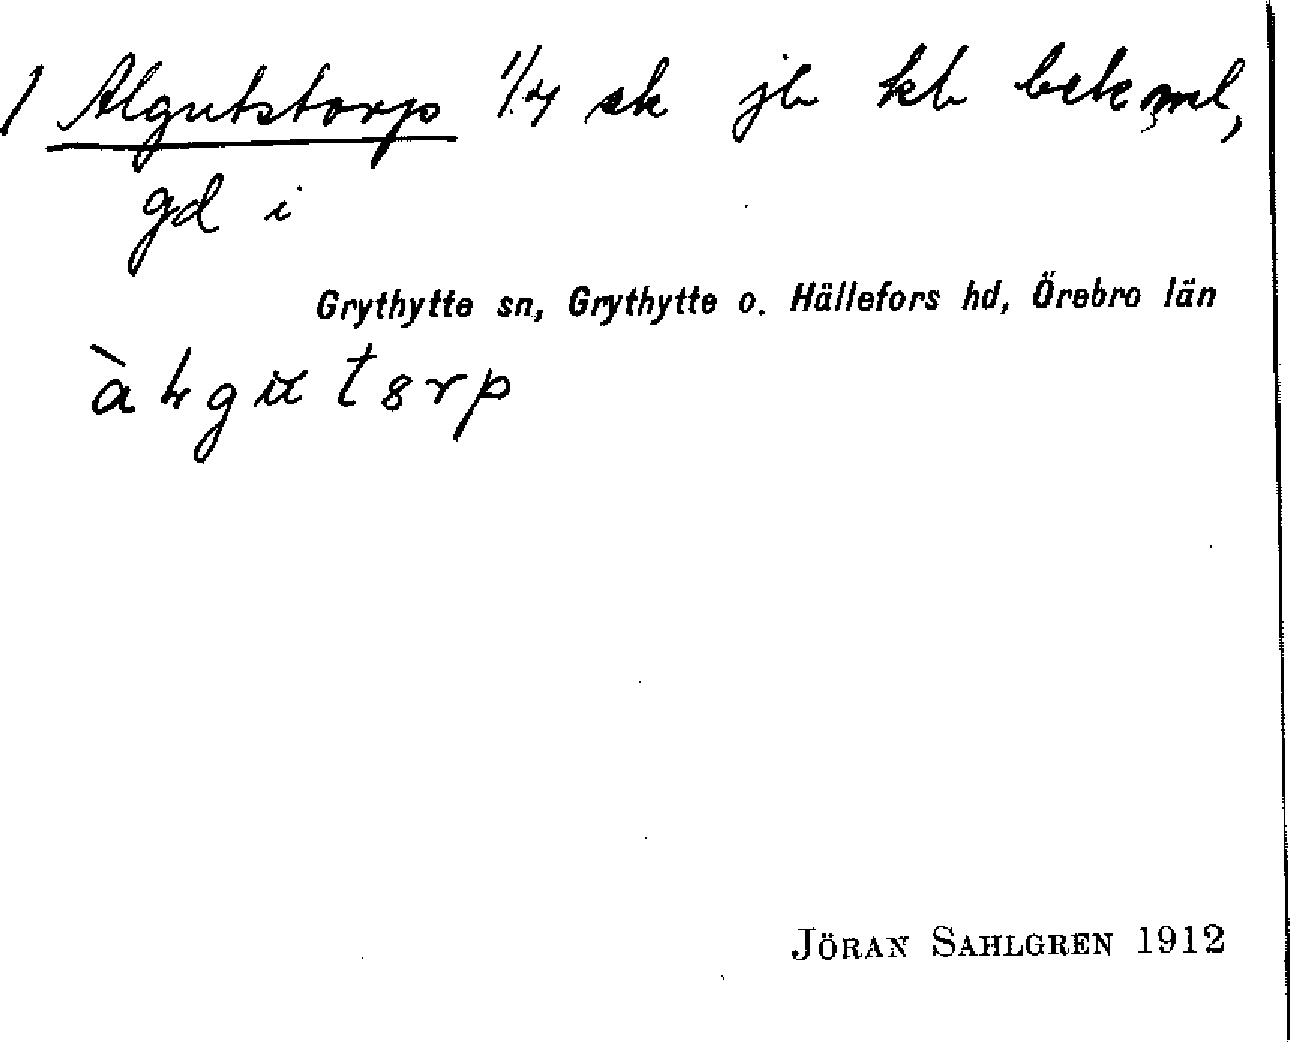 1 Algutstorp 1/4 sk jb kb bek ml,
gd i
Grythytte sn, Grythytte o. Hällefors hd, Örebro län
JÖRAN SAHLGREN 1912